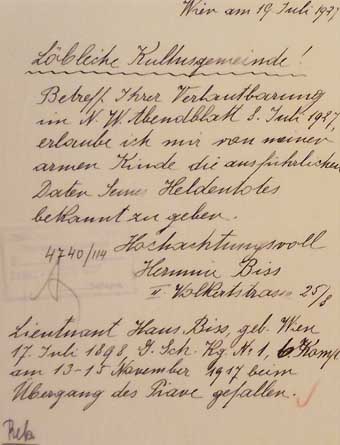 Wien am 19 Juli 1927
Löbliche Kultusgemeinde!
Betreff Ihrer Verlautbarung
im N. W. Abendblatt 8. Juli 1927,
erlaube ich mir von meinem
armen Kinde die ausführlichen
Daten Seines Heldentotes
bekannt zu geben.
4740/114 Hochachtungsvoll
Hermine Biss
II. Volkertstrasse 25/8
Lieutnant Hans Biss, geb. Wien
17 Juli 1898, G. Sch. Rg. N: 1, 6 Komp
am 13-15 November 1917 beim
Übergang des Piave gefallen.